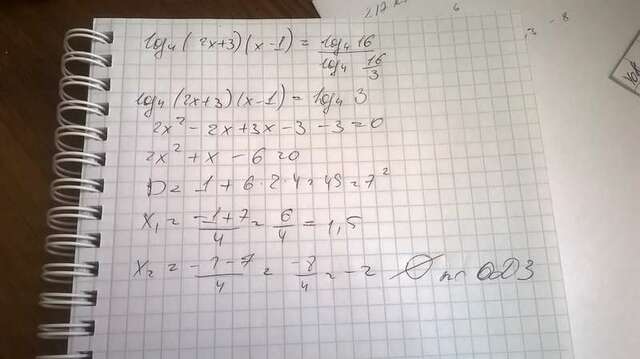 log₄(2x+3)(x-1) = log₄16 / log₄ 16/3
log₄(2x+3)(x-1) = log₄ 3
2x²-2x+3x-3-3=0
2x²+x-6=0
D= 1+6·2·4=49=7²
x₁ = -1+7/4 = 6/4 = 1,5
x₂ = -1-7/4 = -8/4 = -2 ∅ по ОДЗ